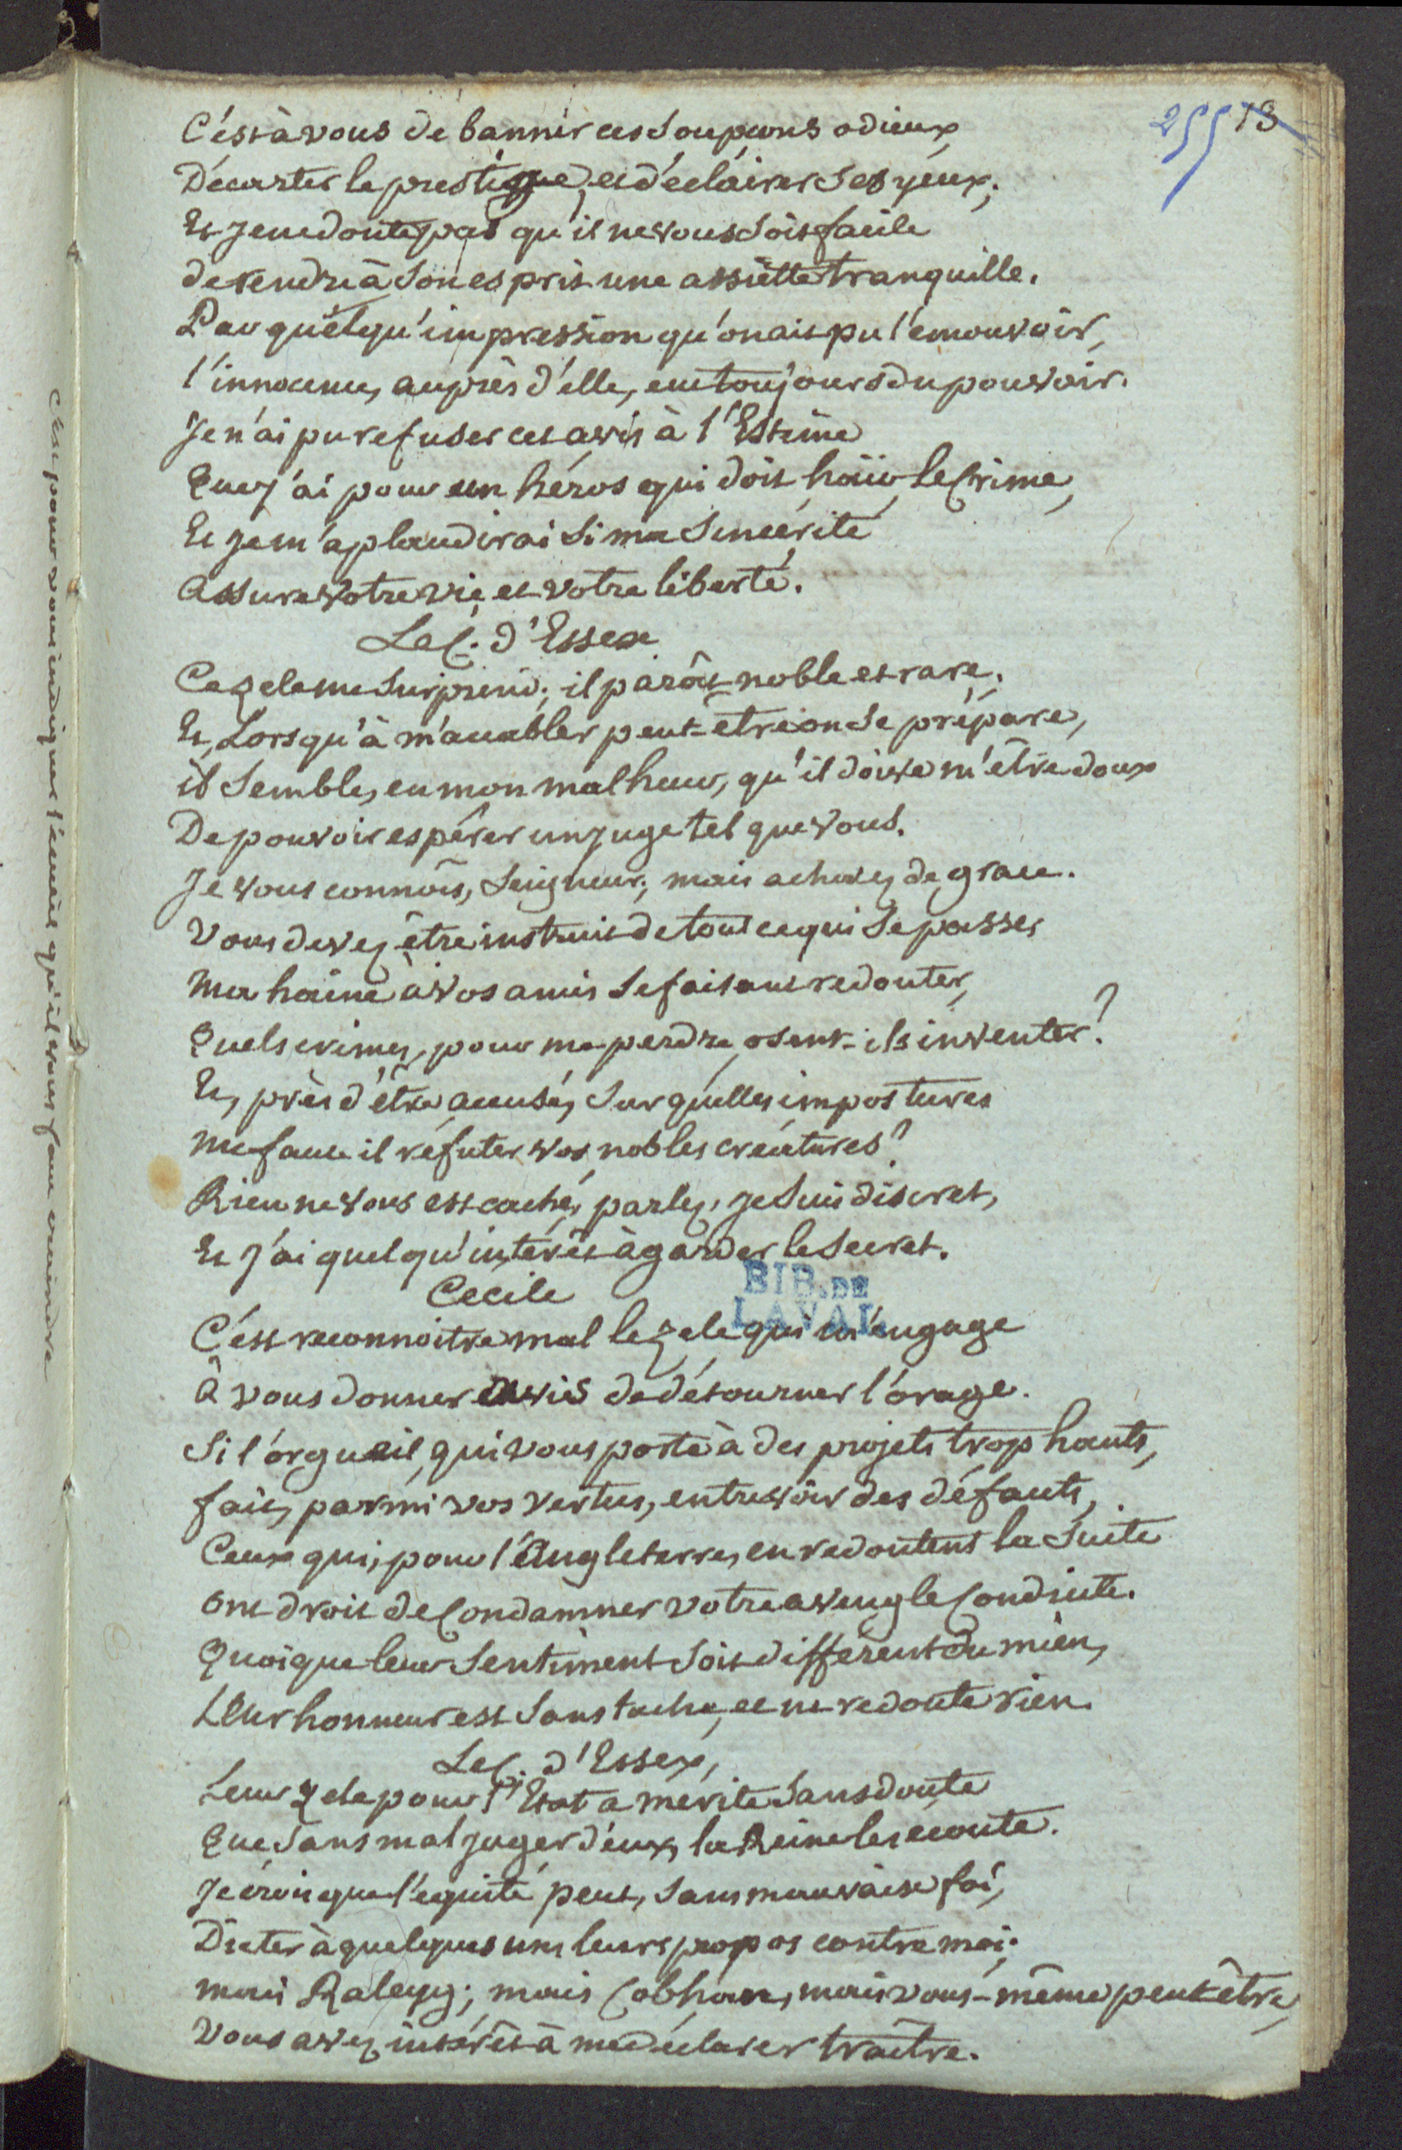 255 13
C'est à vous de bannir ces soupçons odieux,
D'écarter le prestige, et d'éclairer ses yeux;
Et je ne doute pas qu'il ne vous soit facile
de rendre à son esprit une assiette tranquille.
Par quelqu'impression qu'on ait pu l'emouvoir,
l'innocence, auprès d'elle, eut toujours du pouvoir.
Je n'ai pu refuser cet avis à l'Estime
Que j'ai pour un héros qui doit haïr le Crime,
Et je m'aplaudirai si ma sincérité
assure votre vie et votre liberté.
Le C. d'Essex
Ce zele me surprend; il parôit noble et rare.
Et, Lorsqu'à m'accabler peut-être on se prépare,
il semble, en mon malheur, qu'il doive m'être doux
De pouvoir espérer un juge tel que vous.
Je vous connois, Seigneur; mais achevez de grace.
Vous devez être instruit de tout ce qui se passe,
ma haine à vos amis se faisant redouter,
Quels crimes, pour me perdre, osent-ils inventer?
Et, près d'être accusé, sur quelles impostures
me faut il réfuter vos nobles créatures?
Rien ne vous est caché, parlez, je suis discret,
Et j'ai quelqu'intérêt à garder le secret.
Cecile
BIB. DE
LAVAL
C'est reconnoitre mal le zele qui m'engage
à vous donner avis de détourner l'orage.
Si l'orgueil, qui vous porte à des projets trop hauts,
fait, parmi vos vertus, entrevoir des défauts,
Ceux qui, pour l'Angleterre, en redoutent la suite
ont droit de Condamner votre aveugle Conduite.
Quoique leur sentiment soit différent du mien,
Leur honneur est sans tache, et ne redoute rien.
Le C. d'Essex,
Leur zele pour l'Etat a mérité sans doute
Que sans mal juger d'eux, la Reine les ecoute.
Je crois que l'equité peut, sans mauvaise foi,
Dicter à quelques uns leurs propos contre moi;
mais Raleyg; mais Cobham, mais vous-même peut-être,
Vous avez intérêt à me déclarer traître.
C'est pour vous indiquer l'ecueil qu'il vous faut craindre